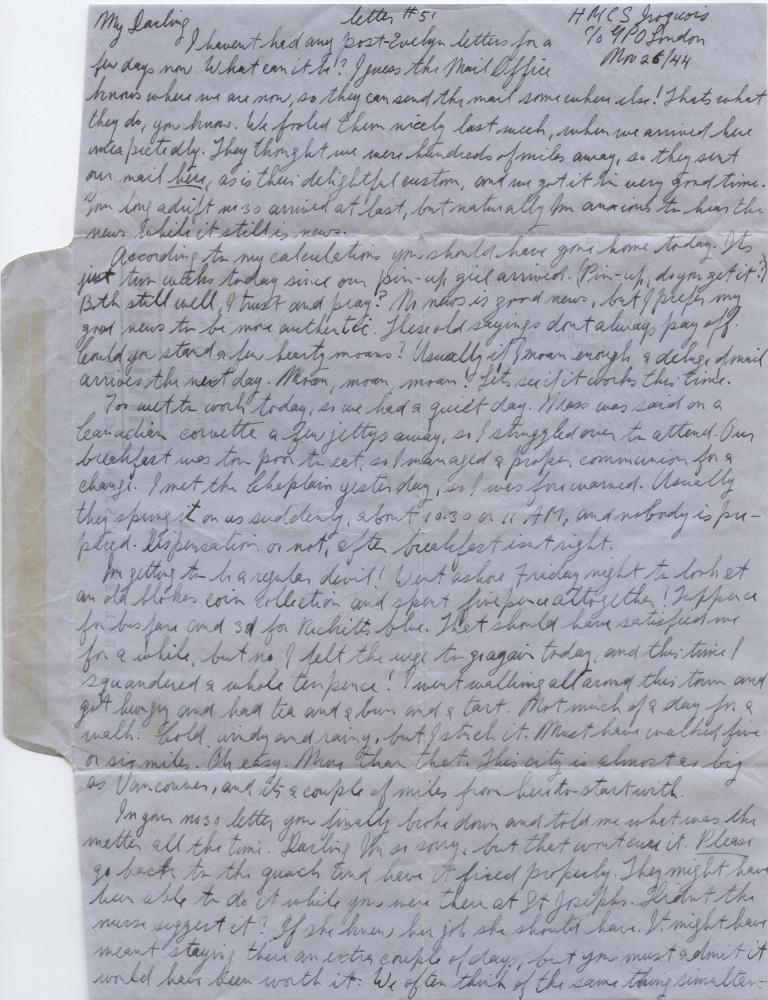 My Darling letter #51 HMCS Iroquois
c/o GPO London
Nov 26/44
I havent had any post-Evelyn letters for a
few days now. What can it be? I guess the Mail Office
knows where we are now, so they can send the mail somewhere else! Thats what
they do, you know. We fooled them nicely last week, when we arrived here
unexpectedly. They thought we were hundreds of miles away, so they sent
our mail here, as is their delightful custom, and we got it in very good time.
Your long adrift no 30 arrived at last, but naturally Im anxious to hear the
news while it still is news.
According to my calculations you should have gone home today. Its
just two weeks today since our pin-up girl arrived. (Pin-up, do you get it?)
Both still well, I trust and pray? No news is good news, but I prefer my
good news to be more authentic. These old sayings dont always pay off.
Could you stand a few hearty moans? Usually if I moan enough, a deluge of mail
arrives the next day. Moan, moan, moan! Lets see if it works this time.
Too wet to work today, so we had a quiet day. Mass was said on a
Canadian corvette a few jettys away, so I struggled over to attend. Our
breakfast was too poor to eat, so I managed a proper communion for a
change. I met the Chaplain yesterday, so I was forewarned. Usually
they spring it on us suddenly, about 10.30 or 11 AM, and nobody is pre-
pared. Dispensation or not, after breakfast isnt right.
Im getting to be a regular devil! Went ashore Friday night to look at
an old blokes coin collection and spent fivepence altogether! Tuppence
for bus fare and 3d for Ricketts blue. That should have satisfied me
for a while, but no, I felt the urge to go again today, and this time I
squandered a whole tenpence! I went walking all around this town and
got hungry and had tea and a bun and a tart. Not much of a day for a
walk. Cold, windy and rainy, but I stuck it. Must have walked five
or six miles. Oh easy. More than that. This city is almost as big
as Vancouver, and its a couple of miles from here to start with.
In your no 30 letter you finally broke down and told me what was the
matter all the time. Darling Im so sorry, but that wont cure it. Please
go back to the quack and have it fixed properly. They might have
been able to do it while you were there at St Josephs. Didnt the
nurse suggest it? If she knew her job she should have. It might have
meant staying there an extra couple of days, but you must admit it
would have been worth it. We often think of the same thing simultan-